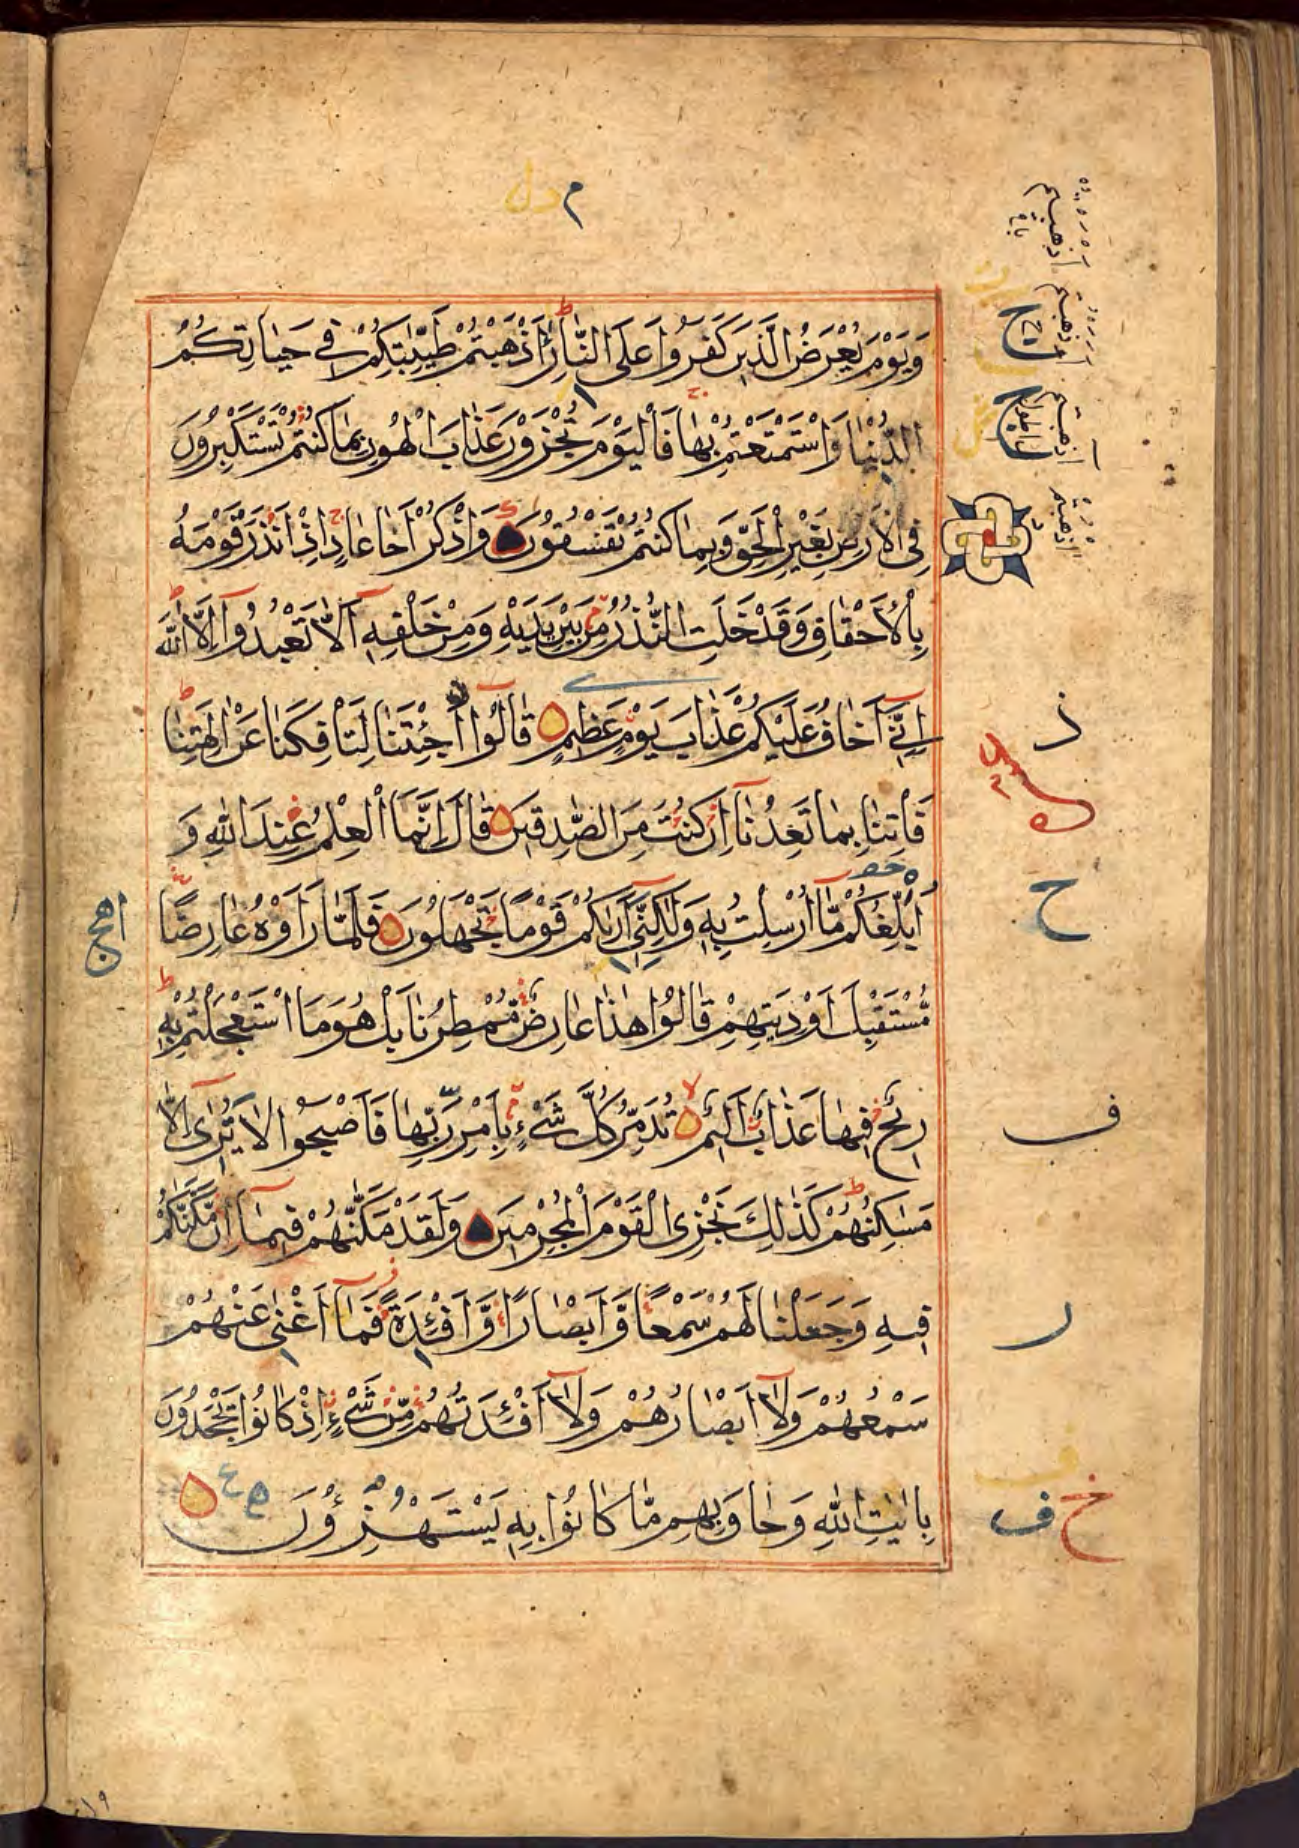 م دل
وَيَوْمَ يُعْرَضُ الَّذِينَ كَفَرُوا عَلَى النَّارِ أَذْهَبْتُمْ طَيِّبٰتِكُمْ فِي حَيَاتِكُمُ
الدُّنْيَا وَاسْتَمْتَعْتُمْ بِهَا فَالْيَوْمَ تُجْزَوْنَ عَذَابَ الْهُونِ بِمَا كُنْتُمْ تَسْتَكْبِرُونَ
فِي الْأَرْضِ بِغَيْرِ الْحَقِّ وَبِمَا كُنْتُمْ تَفْسُقُونَ وَاذْكُرْ أَخَا عَادٍ إِذْ أَنْذَرَ قَوْمَهُ
بِالْأَحْقَافِ وَقَدْ خَلَتِ النُّذُرُ مِنْ بَيْنِ يَدَيْهِ وَمِنْ خَلْفِهِ أَلَّا تَعْبُدُوا إِلَّا اللَّهَ
إِنِّي أَخَافُ عَلَيْكُمْ عَذَابَ يَوْمٍ عَظِيمٍ قَالُوا أَجِئْتَنَا لِتَأْفِكَنَا عَنْ اٰلِهَتِنَا
فَأْتِنَا بِمَا تَعِدُنَا إِنْ كُنْتَ مِنَ الصّٰدِقِينَ قَالَ إِنَّمَا الْعِلْمُ عِنْدَ اللَّهِ وَ
أُبَلِّغُكُمْ مَّا أُرْسِلْتُ بِهِ وَلٰكِنِّي أَرٰىكُمْ قَوْمًا تَجْهَلُونَ فَلَمَّا رَأَوْهُ عَارِضًا
مُّسْتَقْبِلَ أَوْدِيَتِهِمْ قَالُوا هٰذَا عَارِضٌ مُّمْطِرُنَا بَلْ هُوَ مَا اسْتَعْجَلْتُمْ بِهِ
رِيحٌ فِيهَا عَذَابٌ أَلِيمٌ تُدَمِّرُ كُلَّ شَيْءٍ بِأَمْرِ رَبِّهَا فَأَصْبَحُوا لَا يُرٰى إِلَّا
مَسٰكِنُهُمْ كَذٰلِكَ نَجْزِي الْقَوْمَ الْمُجْرِمِينَ وَلَقَدْ مَكَّنّٰهُمْ فِيمَا إِنْ مَّكَّنّٰكُمْ
فِيهِ وَجَعَلْنَا لَهُمْ سَمْعًا وَّأَبْصَارًا وَّأَفْئِدَةً فَمَا أَغْنٰى عَنْهُمْ
سَمْعُهُمْ وَلَا أَبْصَارُهُمْ وَلَا أَفْئِدَتُهُمْ مِّنْ شَيْءٍ إِذْ كَانُوا يَجْحَدُونَ
بِاٰيٰتِ اللَّهِ وَحَاقَ بِهِمْ مَّا كَانُوا بِهِ يَسْتَهْزِءُونَ
ح
ف
ر
خ ف
١٩